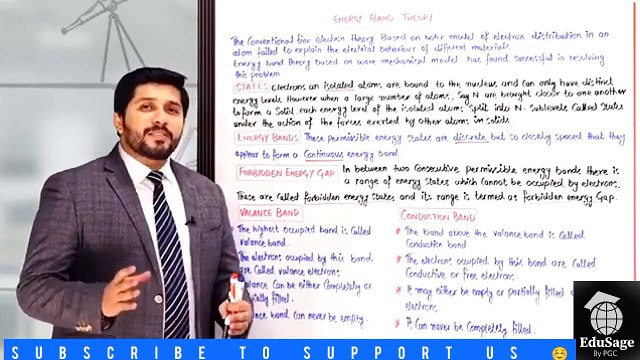 ENERGY BAND THEORY
The Conventional free electron theory Based on Bohr model of electron distribution in an
atom failed to explain the electrical behaviour of different materials.
Energy band theory based on wave mechanical model has found successful in resolving
this problem
STATES: Electrons in isolated atoms are bound to the nucleus and can only have distinct
energy levels. However when a large number of atoms, say N are brought closer to one another
to form a Solid, each energy level of the isolated atoms split into N- sublevels Called states
under the action of the forces exerted by other atoms in solids
ENERGY BANDS: These permissible energy states are discrete but so closely spaced that they
appear to form a Continuous energy band
FORBIDDEN ENERGY GAP In between two Consecutive permissible energy bands there is
a range of energy states which cannot be occupied by electrons.
These are called forbidden energy states and its range is termed as forbidden energy Gap.
VALANCE BAND
The highest occupied band is Called
valance band.
The electrons occupied by this band
are Called valance electrons
valance can be either Completely or
partially filled.
band can never be empty.
CONDUCTION BAND
The band above the valance band is Called
Conduction band
The electrons occupied by this band are Called
Conductive or free electrons.
It may either be empty or partially filled
electrons
It can never be Completely filled.
EduSage
By PGC
SUBSCRIBE TO SUPPORT US 😊